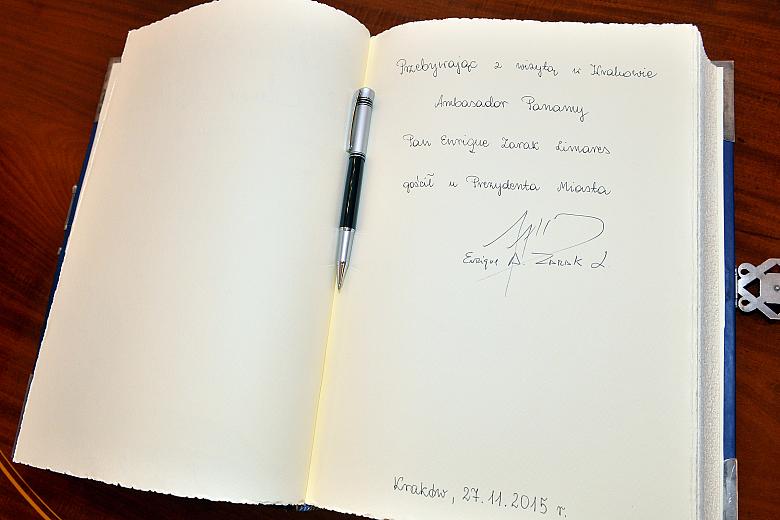 Przebywając z wizytą w Krakowie
Ambasador Panamy
Pan Enrique Zarak Linares
gościł u Prezydenta Miasta
Enrique A. ZARAK L.
Kraków, 27.11.2015 r.